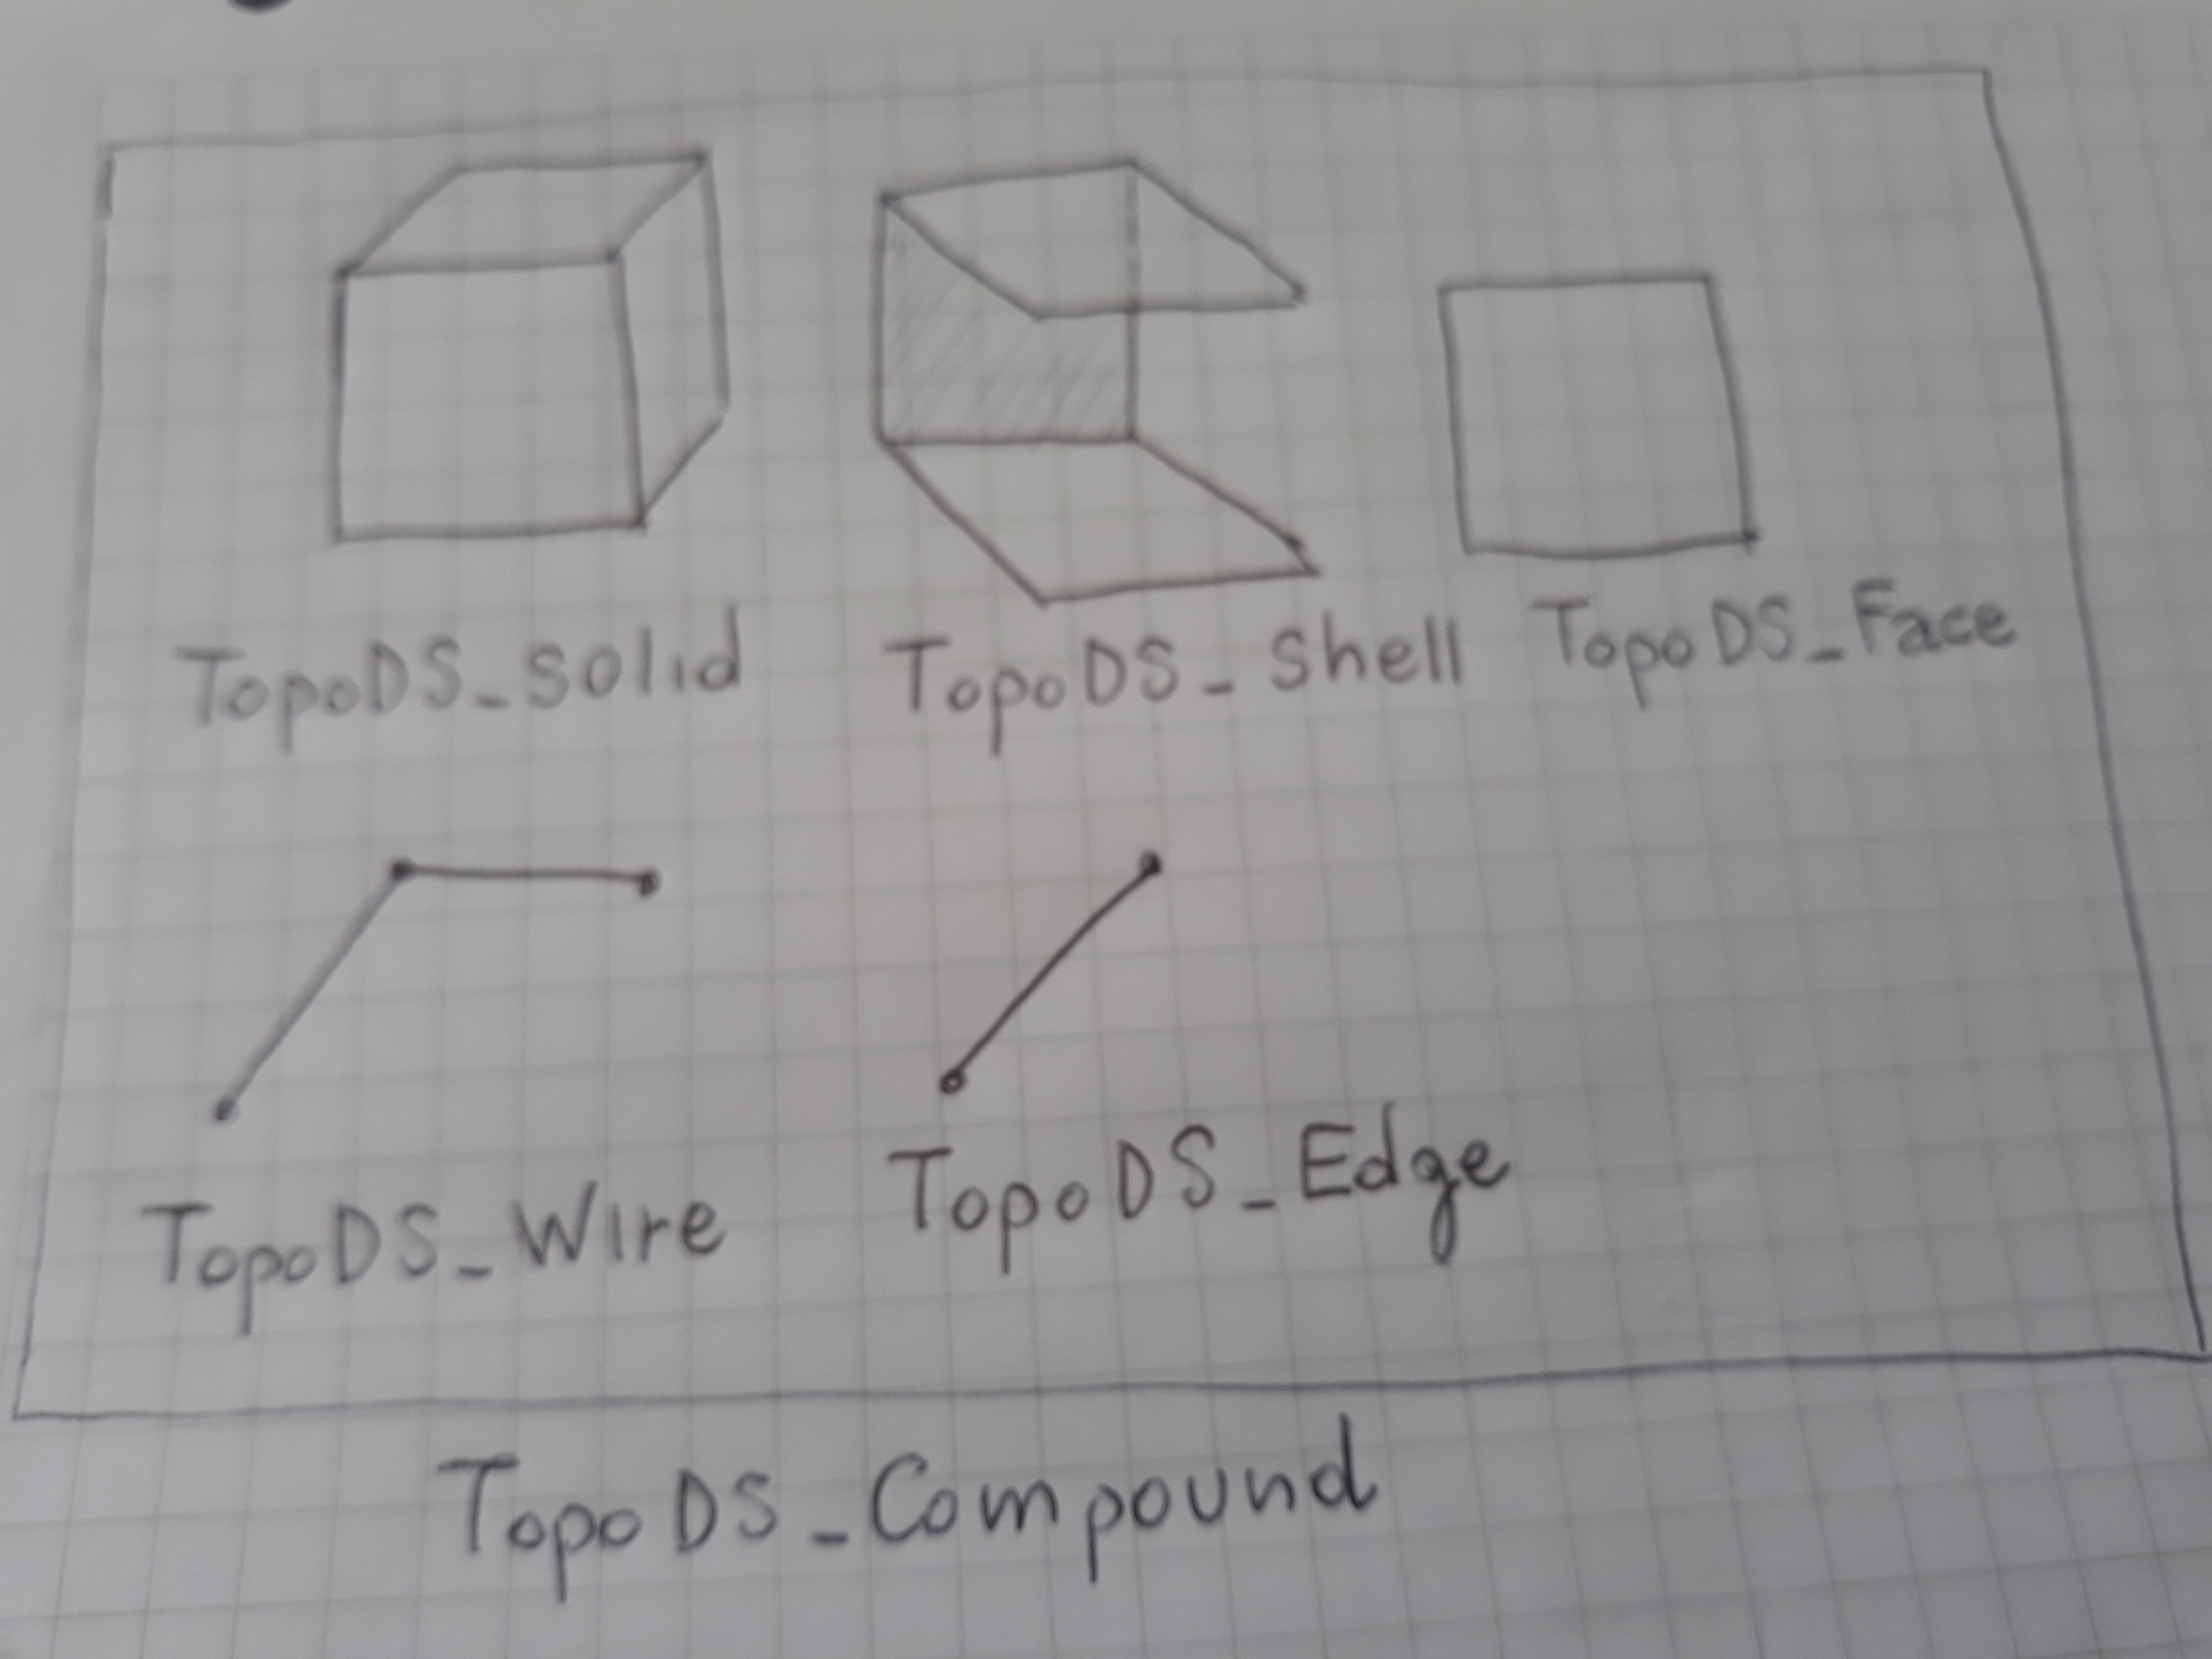 TopoDS_solid TopoDS_Shell TopoDS_Face
TopoDS_Wire TopoDS_Edge
TopoDS_Compound